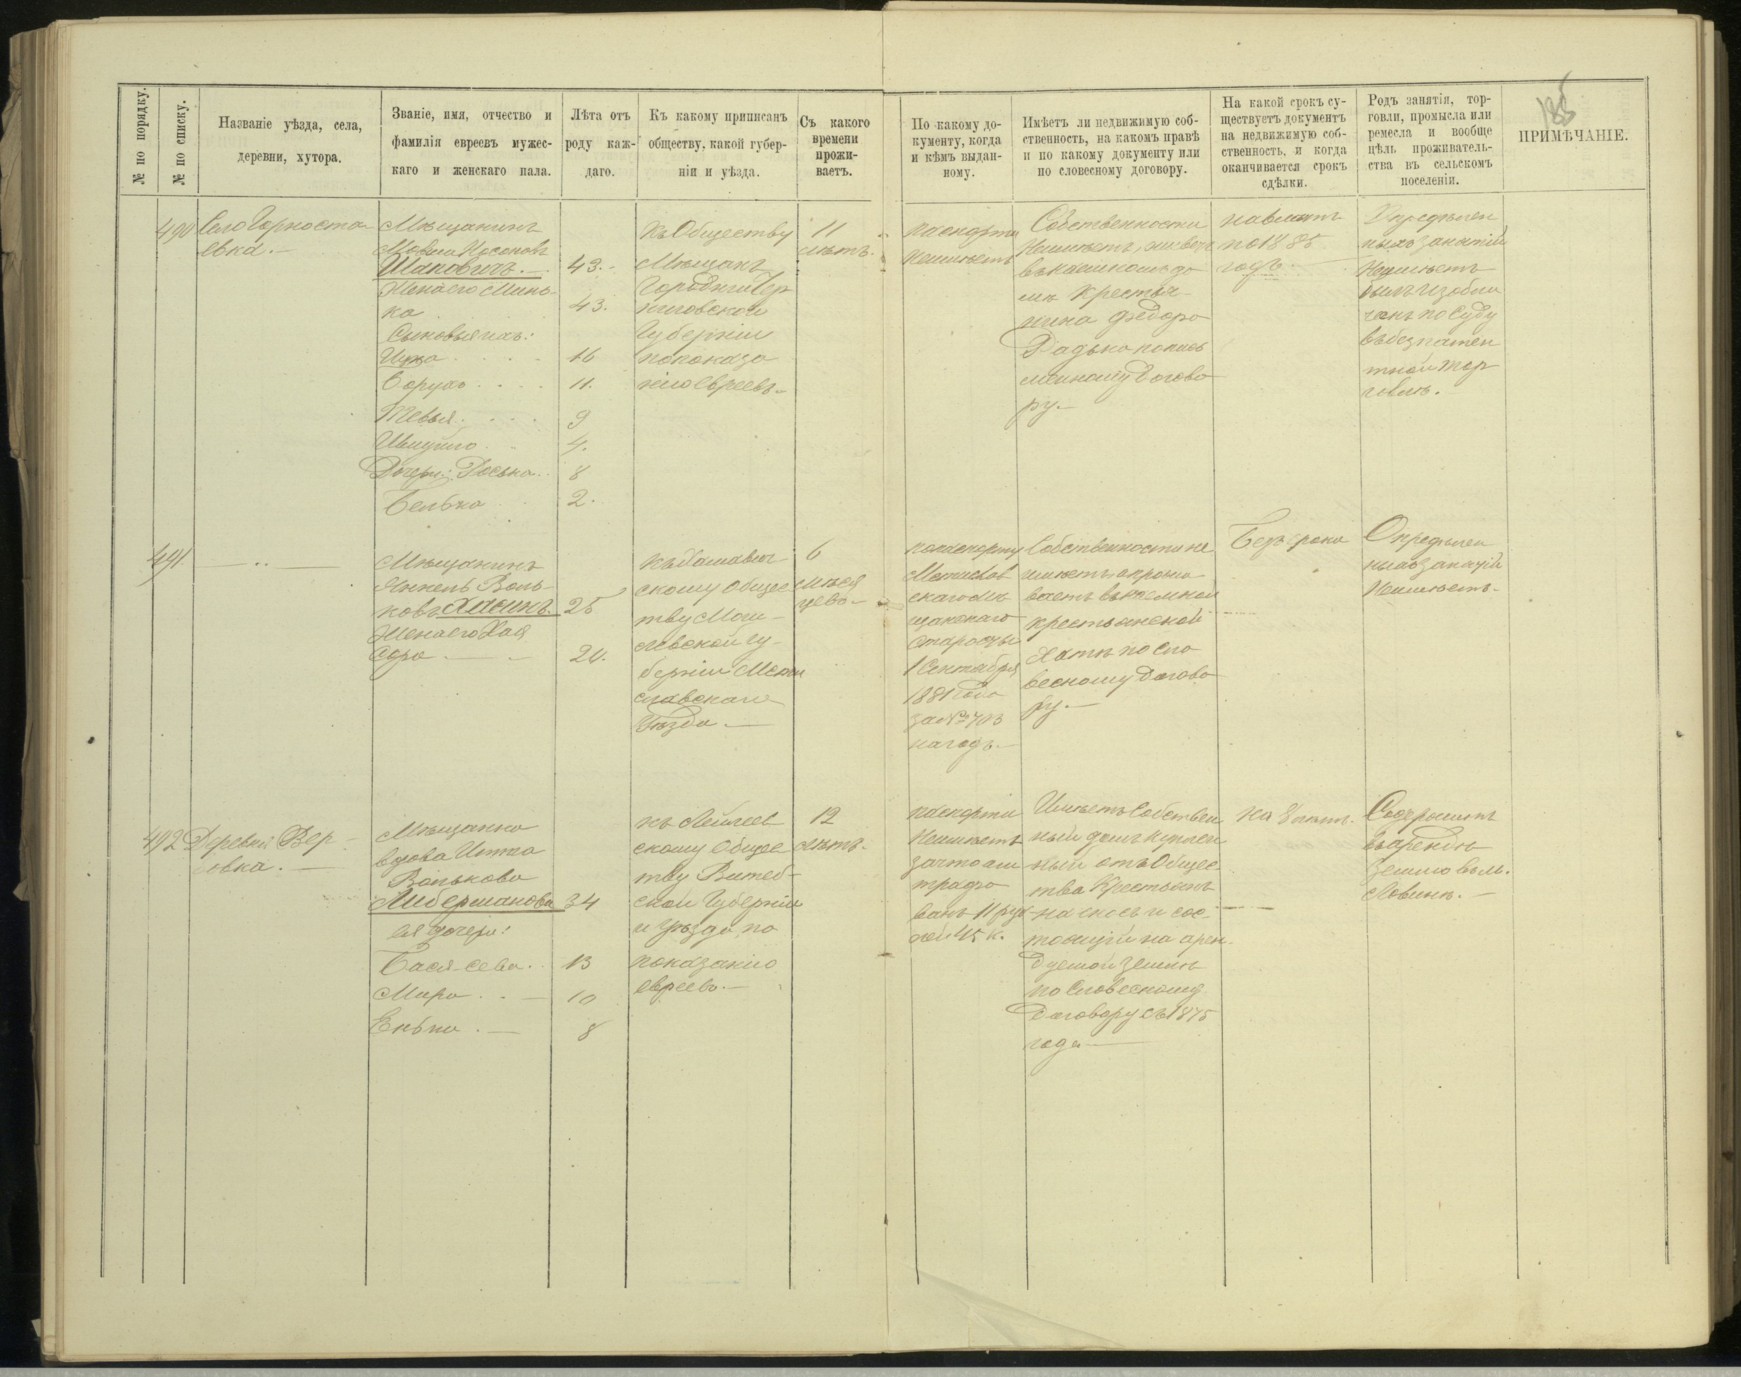 185
№ по порядку.
№ по списку.
Названіе уѣзда, села,
деревни, хутора.
Званіе, имя, отчество и
фамилія евреевъ мужес-
каго и женскаго пола.
Лѣта отъ
роду каж-
даго.
Къ какому приписанъ
обществу, какой губер-
ніи и уѣзда.
Съ какого
времени
прожи-
ваетъ.
По какому до-
кументу, когда
и кѣмъ выдан-
ному.
Имѣетъ ли недвижимую соб-
ственность, на какомъ правѣ
и по какому документу или
по словесному договору.
На какой срокъ су-
ществуетъ документъ
на недвижимую соб-
ственность, и когда
оканчивается срокъ
сдѣлки.
Родъ занятія, тор-
говли, промысла или
ремесла и вообще
цѣль проживатель-
ства въ сельскомъ
поселеніи.
ПРИМѢЧАНІЕ.
490
Село Горноста
евка.
Мѣщанинъ
Мовша Носоновъ
Шановичъ. 43.
Жена его Минь-
ка 43.
Сыновья ихъ:
Ицко 16
Борухъ 11.
Тевья 9
Шмуйло 4.
Дочери: Роська 8
Бейлька 2.
къ Обществу
Мѣщанъ
Городни Чер
ниговской
Губерніи
по показа
нію Евреевъ
11
лѣтъ.
паспорта
Неимѣетъ
Собственности
Неимѣетъ, живетъ
въ наемномъ до
мѣ Крестья-
нина Федора
Радька по пись
менному Догово
ру.
по 1885
годъ
Опредѣлен
ныхъ занятій
Неимѣетъ
былъ изобли
ченъ по Суду
въ безпатен
тной тор
говлѣ.
491
Мѣщанинъ
Янкель Воль-
ковъ Хасинъ. 25
Жена его Хая
Сора 20.
скому Общес
тву Моги-
левской Гу-
берніи Мсти
славскаго
Уѣзда.
6
мѣся
цевъ
по паспорту
Мстислав
скаго Мѣ
щанскаго
Старосты
1 Сентября
1881 года
за № 703
на годъ.
Собственности не
имѣетъ а прожи
ваетъ въ наемной
крестьянской
Хатѣ по Сло
весному Догово
ру.
Безъ срока
Опредѣлен
ныхъ занятій
Неимѣетъ.
492
Деревня Вер
овка.
Мѣщанка
вдова Итта
Волькова
Либерманова 34
Ея дочери:
Бася-Сева 13
Мира 10
Енька 8
скому Общес
тву Витеб-
ской Губерніи
и уѣзда, по
показанію
евреевъ.
12
лѣтъ.
паспорта
Неимѣетъ
за что ош
трафо
ванъ 11 руб
лей 45 к.
Имѣетъ Собствен
ный домъ куплен
ный отъ Общес-
тва Крестьянъ
на сносъ и сос-
тоящій на арен-
дуемой землѣ
по Словесному
Договору съ 1875
года
на 8 лѣтъ.
Содержитъ
въ арендѣ
землю въ м.
Ловинѣ.